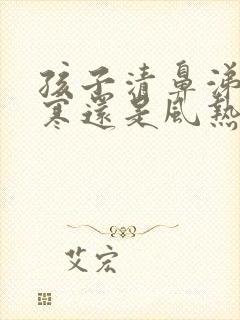 孩子清鼻涕
寒還是風熱
艾宏